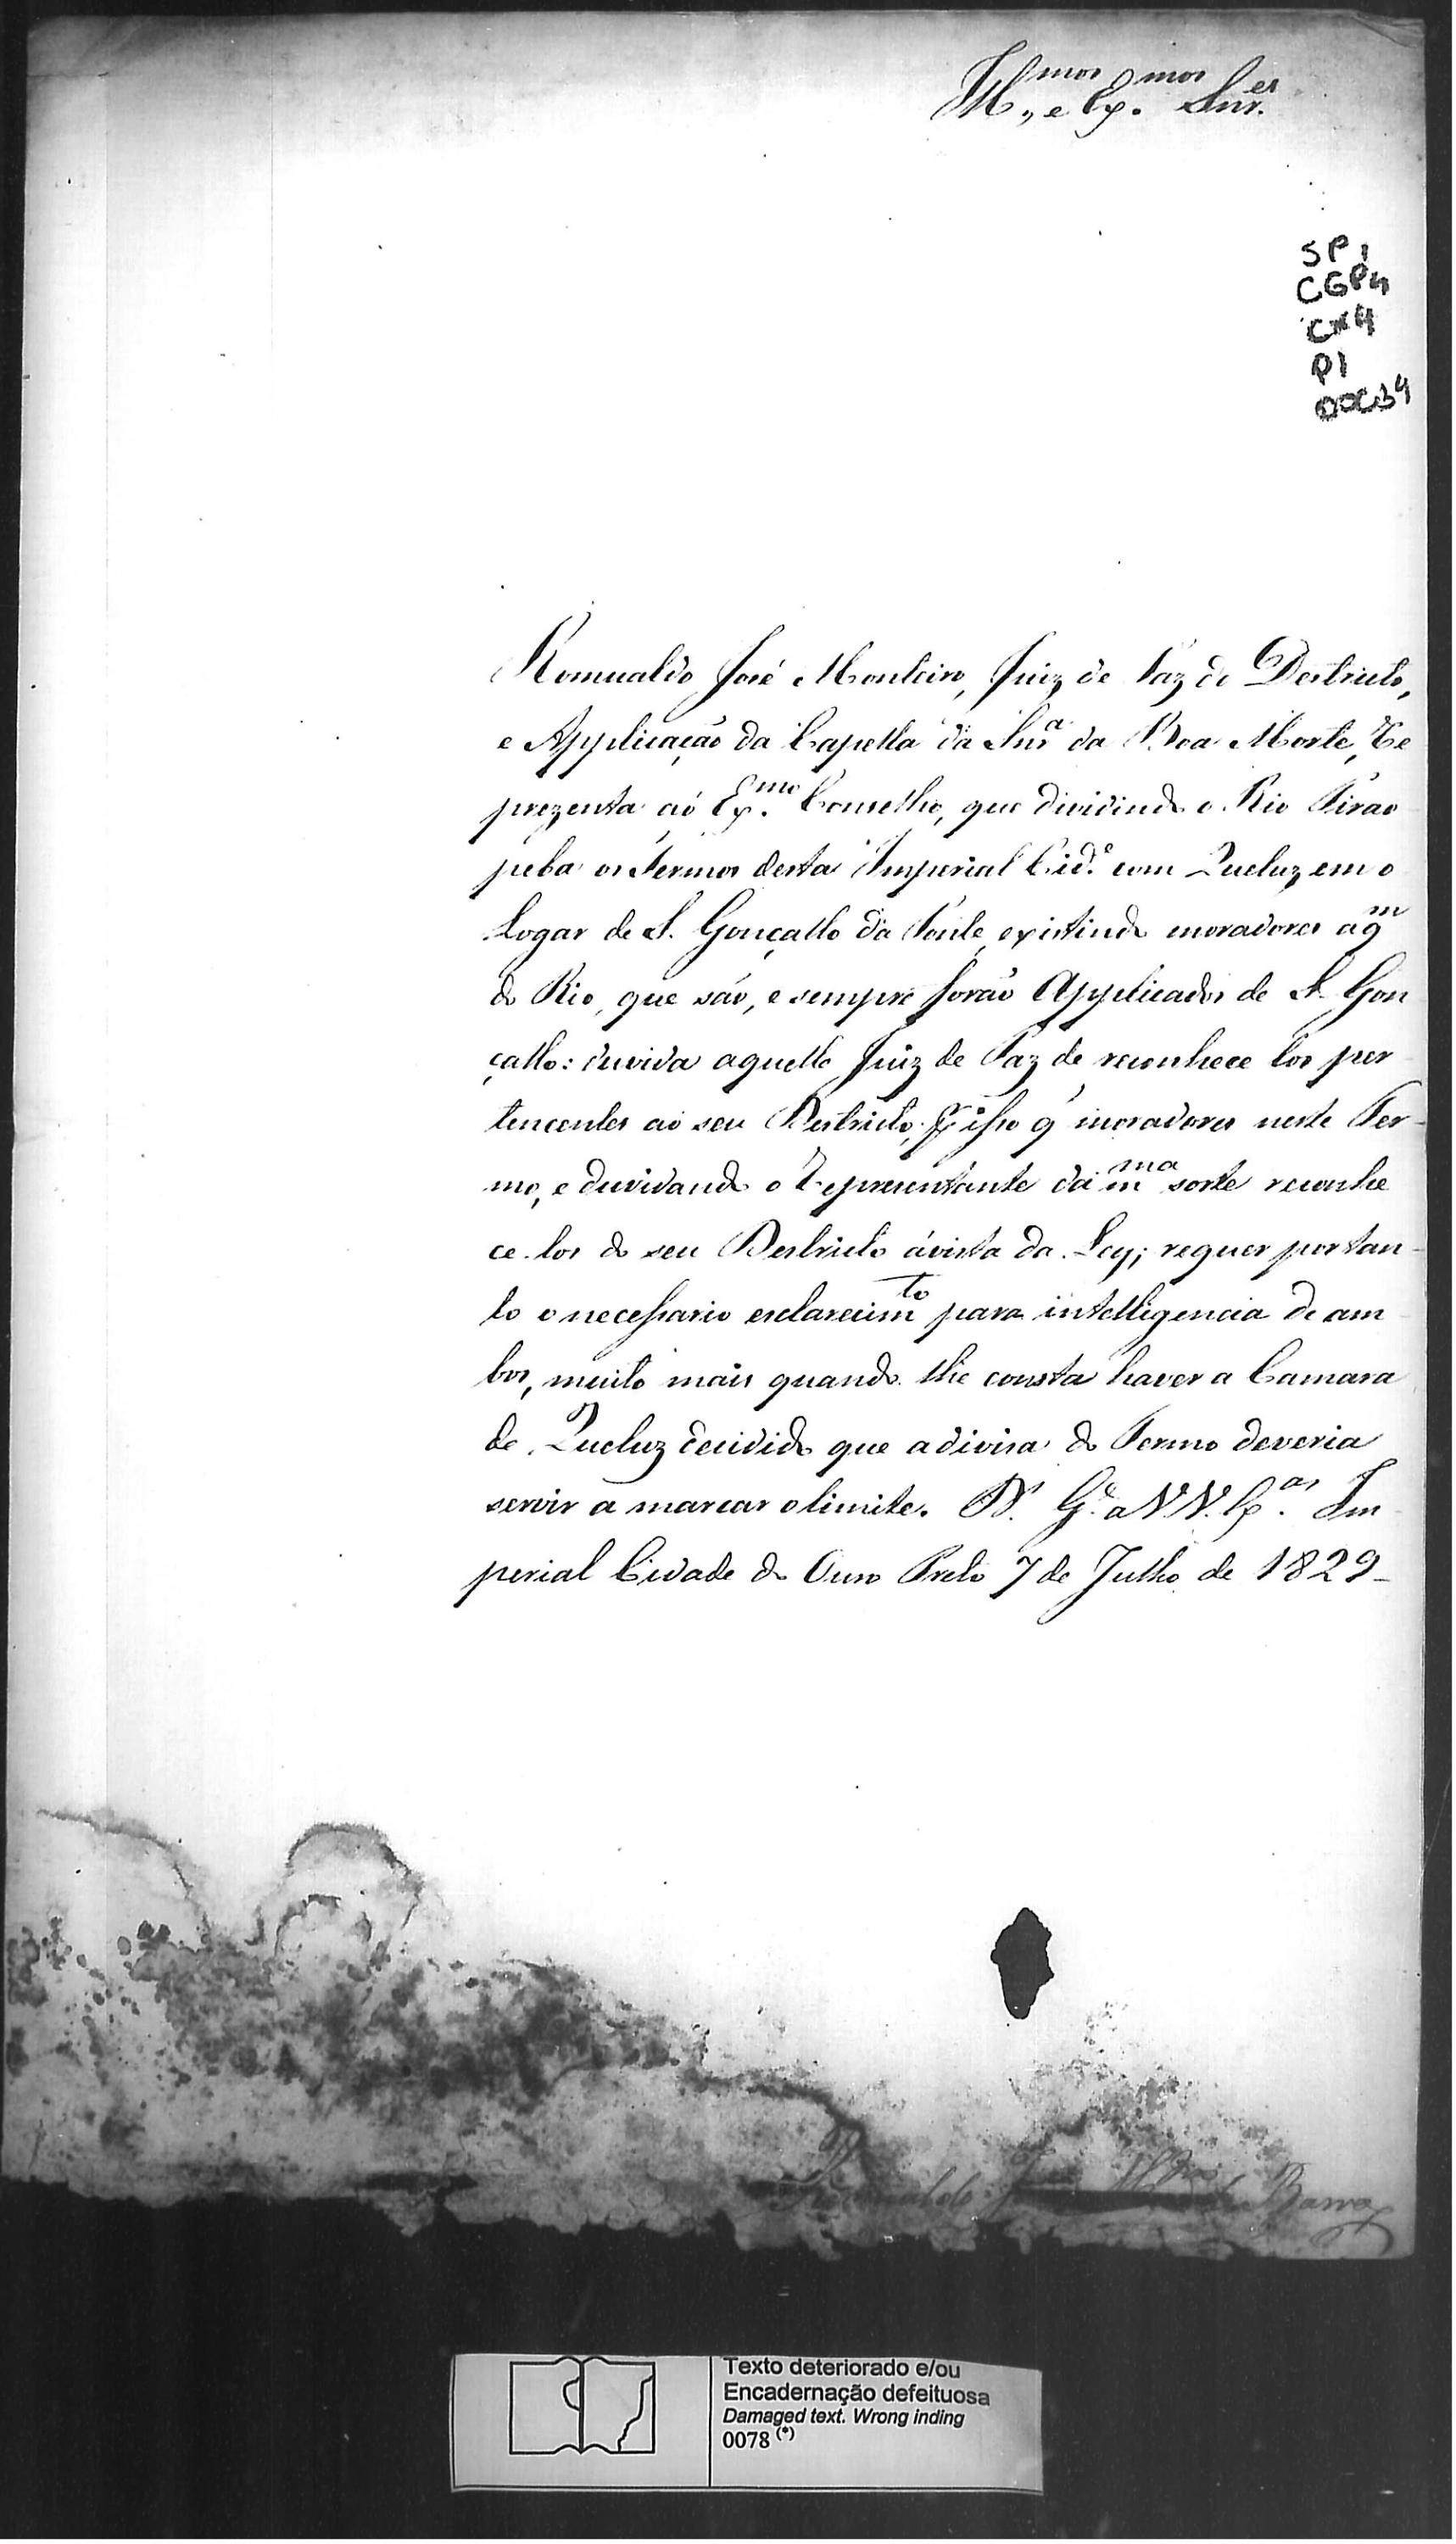 Illmos, e Exmos Snres
SP1
CGP4
CX4
P1
DOC34
Romualdo José Monteiro, Juiz de Paz do Destricto,
e Applicação da Capella da Snra da Boa Morte, Re
prezenta ao Exmo Conselho, que dividindo o Rio Parao
peba os Termos desta Imperial Cide com Queluz, em o
Logar de S. Gonçallo da Ponte, existindo moradores aqm
do Rio, que são, e sempre forão Applicados de S. Gon
çallo: duvida aquelle Juiz de Paz de reconhece los per-
tencentes ao seu Destricto, pr isso q' moradores neste Ter-
mo, e duvidando o Representante da mma sorte reconhe
ce-los do seu Destricto ávista da Ley; requer portan-
to o necessario esclarecimto para intelligencia de am
bos, muito mais quando lhe consta haver a Camara
de Queluz decidido que a divisa do Termo deveria
servir a marcar o limite. Ds. Ge. a VV. Exas. Im
perial Cidade do Ouro Preto 7 de Julho de 1829-
Romualdo José Barros
Texto deteriorado e/ou
Encadernação defeituosa
Damaged text. Wrong inding
0078 (*)